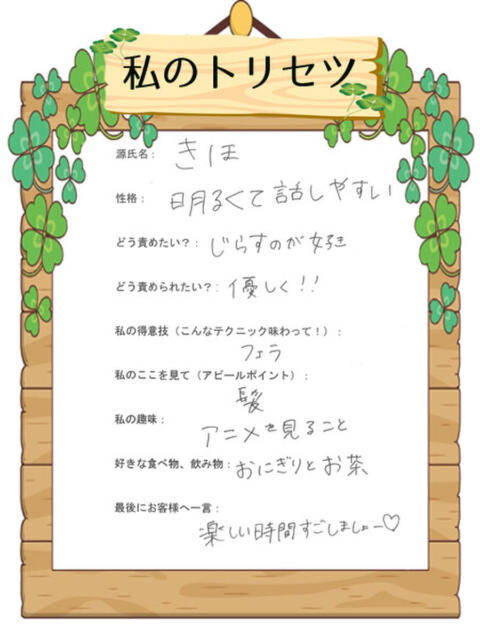 私のトリセツ
源氏名： きほ
性格： 明るくて話しやすい
どう責めたい？： じらすのが好き
どう責められたい？： 優しく!!
私の得意技（こんなテクニック味わって！）：
フェラ
私のここを見て（アピールポイント）：
髪
私の趣味：
アニメを見ること
好きな食べ物、飲み物： おにぎりとお茶
最後にお客様へ一言：
楽しい時間すごしましょー♡